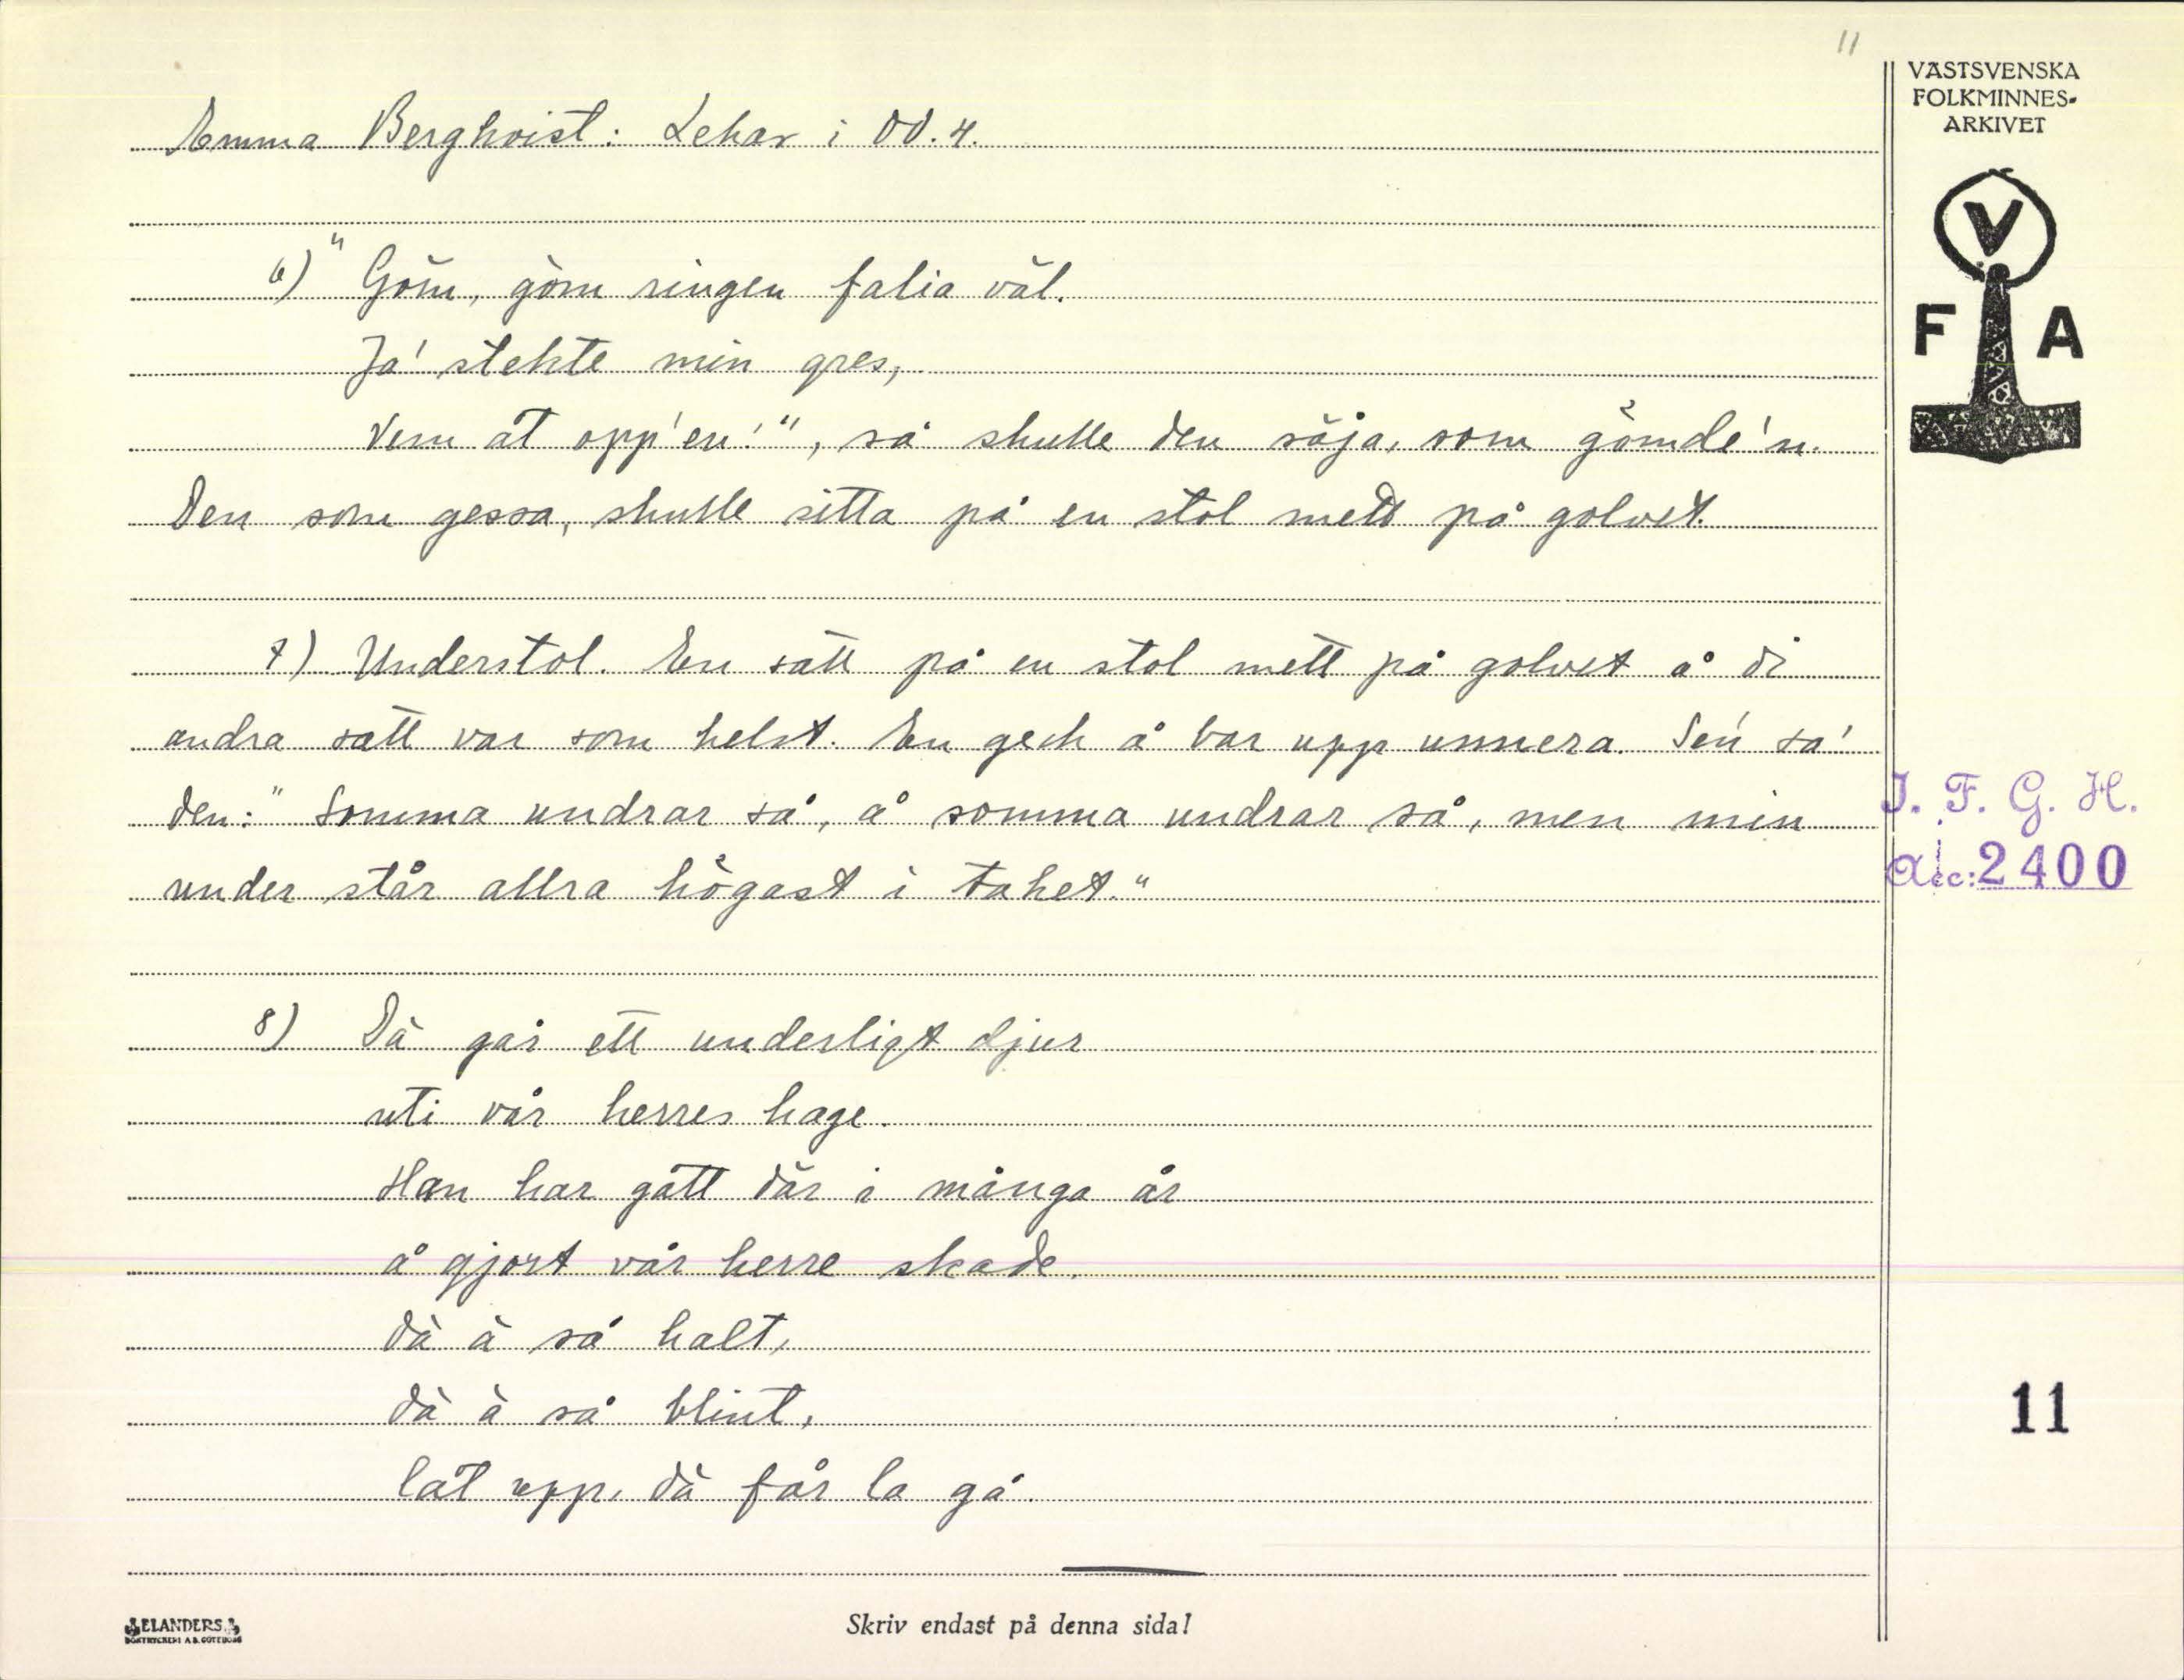 11
VÄSTSVENSKA
FOLKMINNES-
ARKIVET
V
F A
Emma Bergkvist: Lekar i Od. 4.
6) "Göm, göm ringen falia väl.
Ja' stekte min gres,
Vem åt opp'en!", så skulle den säja, som gömde'n.
Den som gessa, skulle sitta på en stol mett på golvet.
7) Understol. En satt på en stol mett på golvet å di
andra satt var som helst. En geck å bar upp unnera. Sen sa'
den: "Somma undrar så, å somma undrar så, men min
under står allra högast i taket."
I. F. G. H.
Acc: 2400
8) Dä går ett underligt djur
uti vår herres hage.
Han har gått där i många år
å gjort vår herre skade.
Dä ä så halt,
dä ä så blint,
låt upp, dä får la gå.
11
ELANDERS
BOKTRYCKERI A.B. GÖTEBORG
Skriv endast på denna sida!